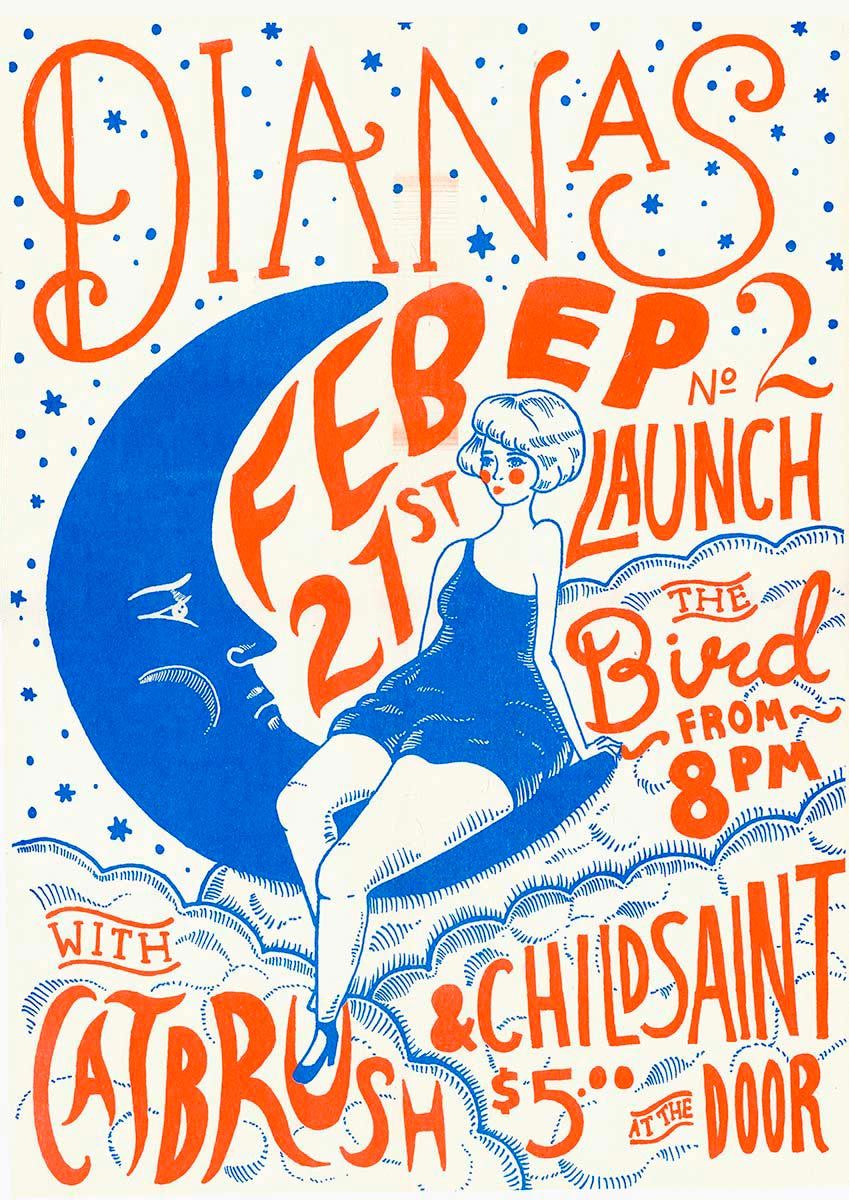 DIANAS
EP No 2
LAUNCH
FEB
21ST
THE
Bird
FROM
8PM
WITH
CATBRUSH
& CHILDSAINT
$5.00
AT THE DOOR